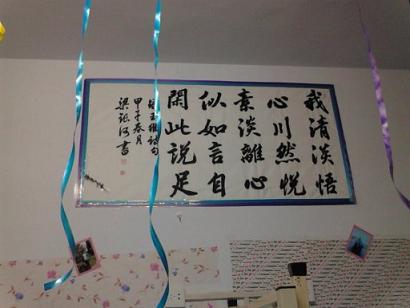 我心素似閑
清川淡如此
淡然離言説
悟悦心自足
王維詩句
甲午春月
梁 河書